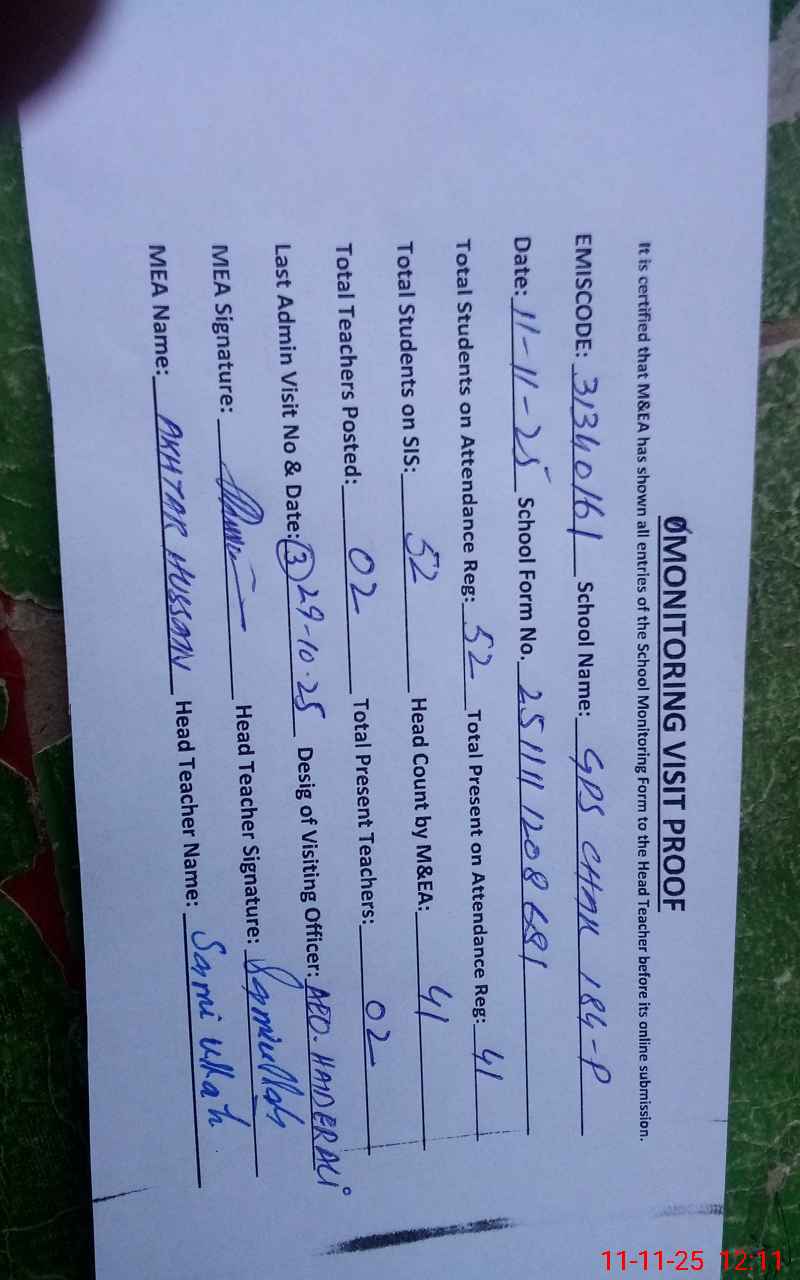 ØMONITORING VISIT PROOF
It is certified that M&EA has shown all entries of the School Monitoring Form to the Head Teacher before its online submission.
EMISCODE: 31340161 School Name: GPS CHAK 184-P
Date: 11-11-25 School Form No. 251111208681
Total Students on Attendance Reg: 52 Total Present on Attendance Reg: 41
Total Students on SIS: 52 Head Count by M&EA: 41
Total Teachers Posted: 02 Total Present Teachers: 02
Last Admin Visit No & Date: (3) 29-10-25 Desig of Visiting Officer: AEO. HAIDER ALI
MEA Signature: Head Teacher Signature: Samiullah
MEA Name: AKHTAR HUSSAIN Head Teacher Name: Sami ullah
11-11-25 12:11